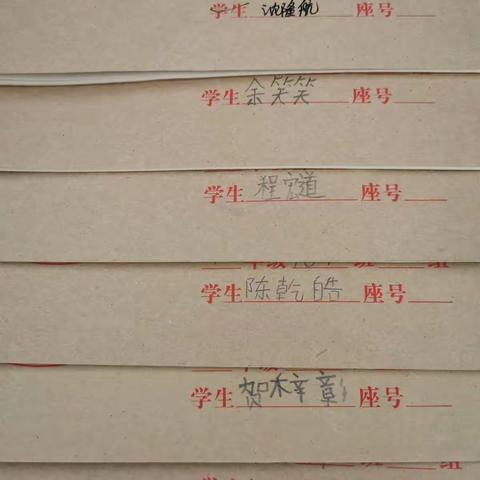 学生 沈隆航 座号
学生 余笑笑 座号
学生 程宏道 座号
年级 班 组
学生 陈乾皓 座号
学生 贺梓彰 座号